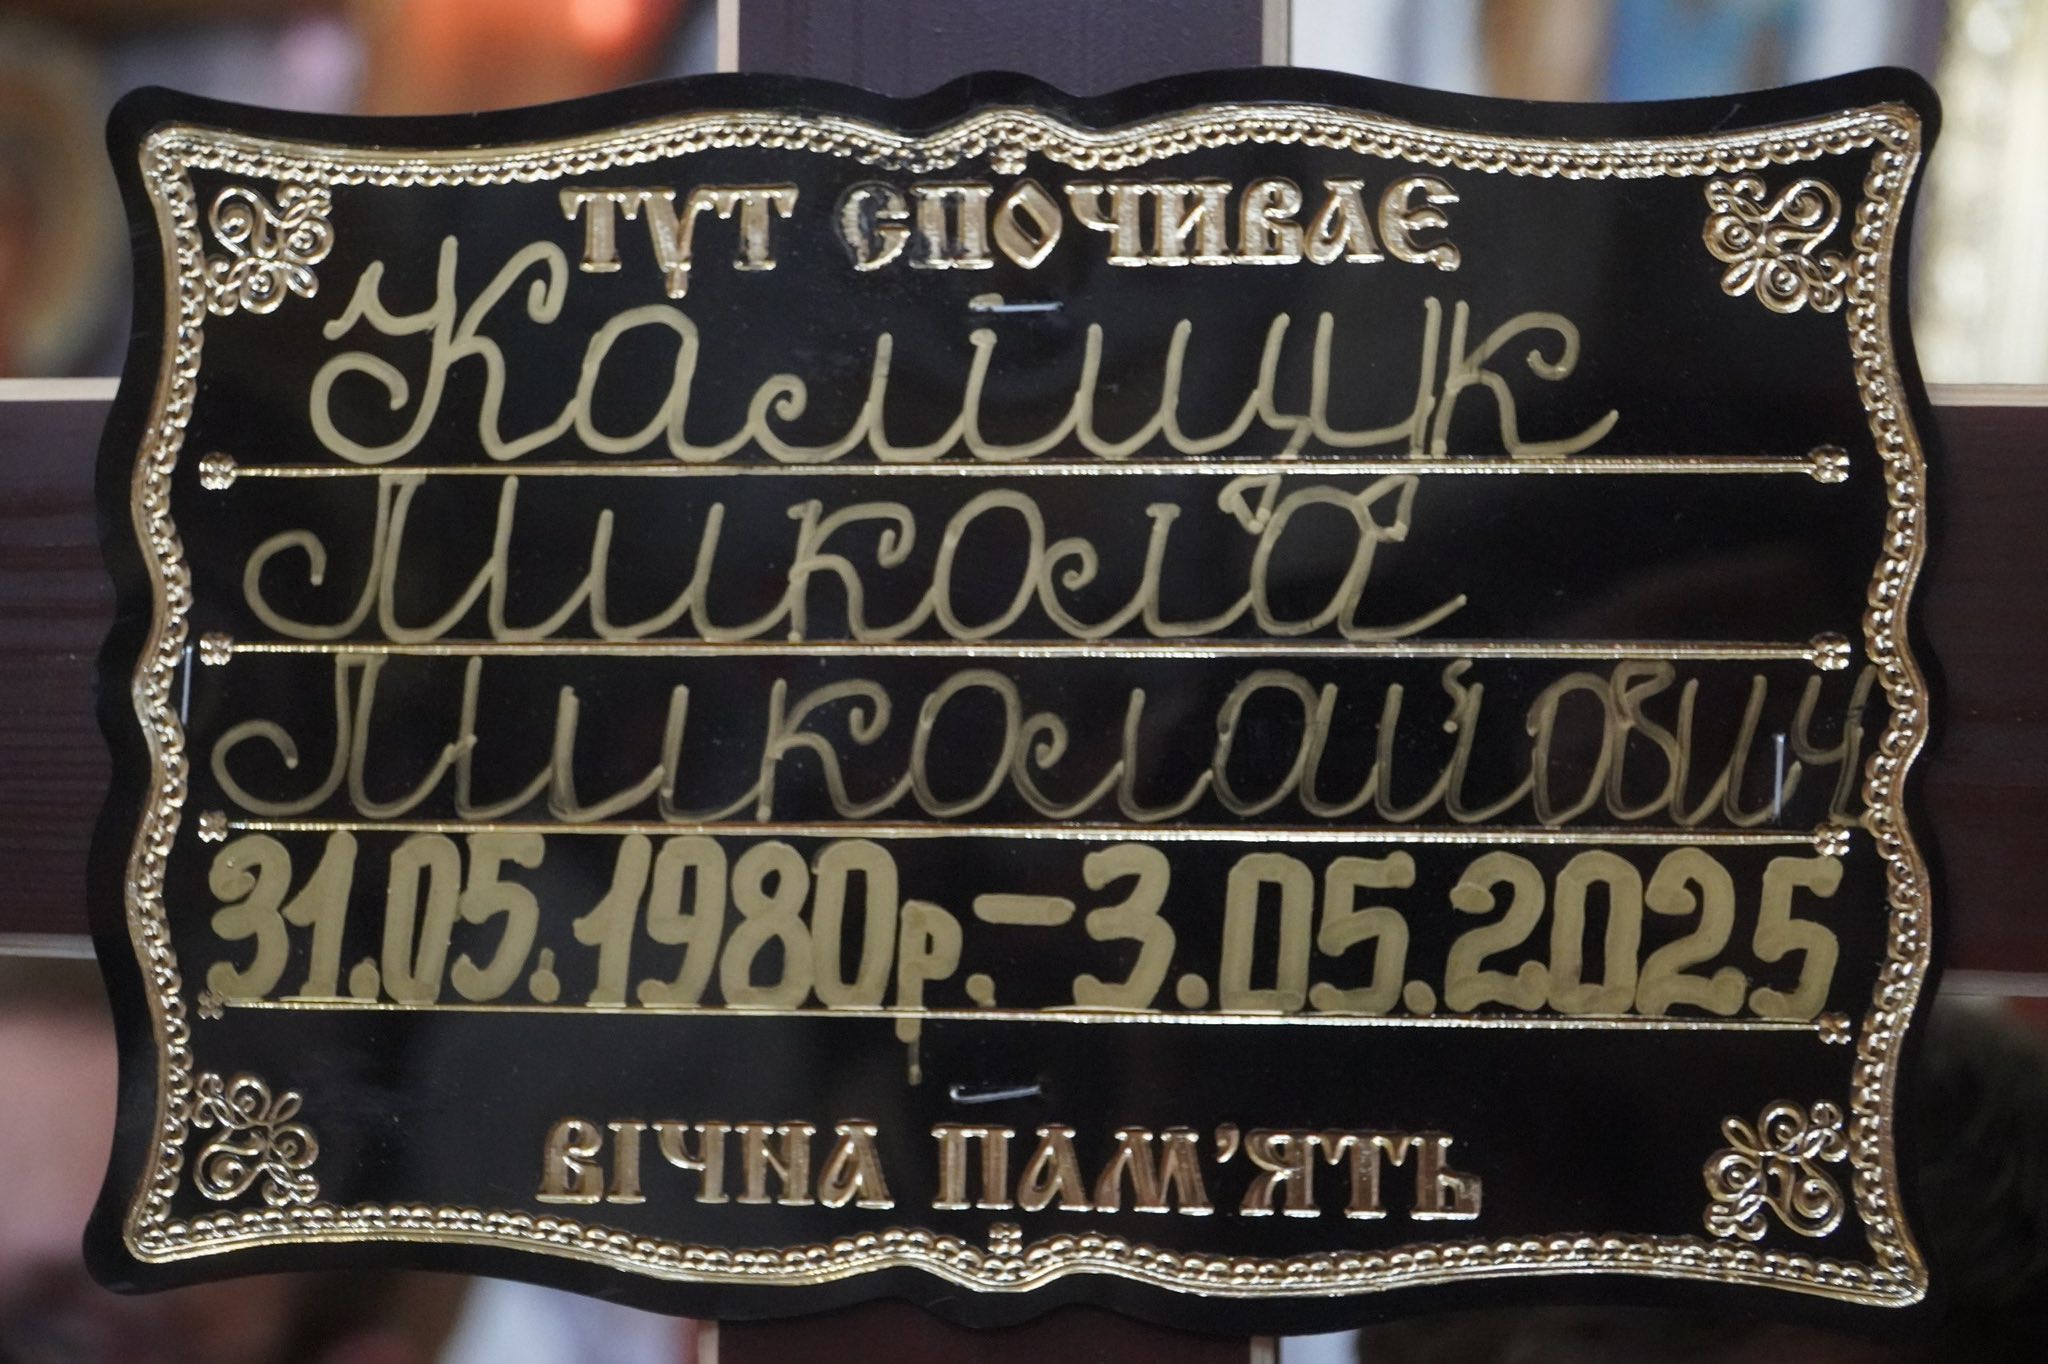 ТУТ СПОЧИВАЄ
Каліщук
Микола
Миколайович
31.05.1980р.-3.05.2025
ВІЧНА ПАМ'ЯТЬ